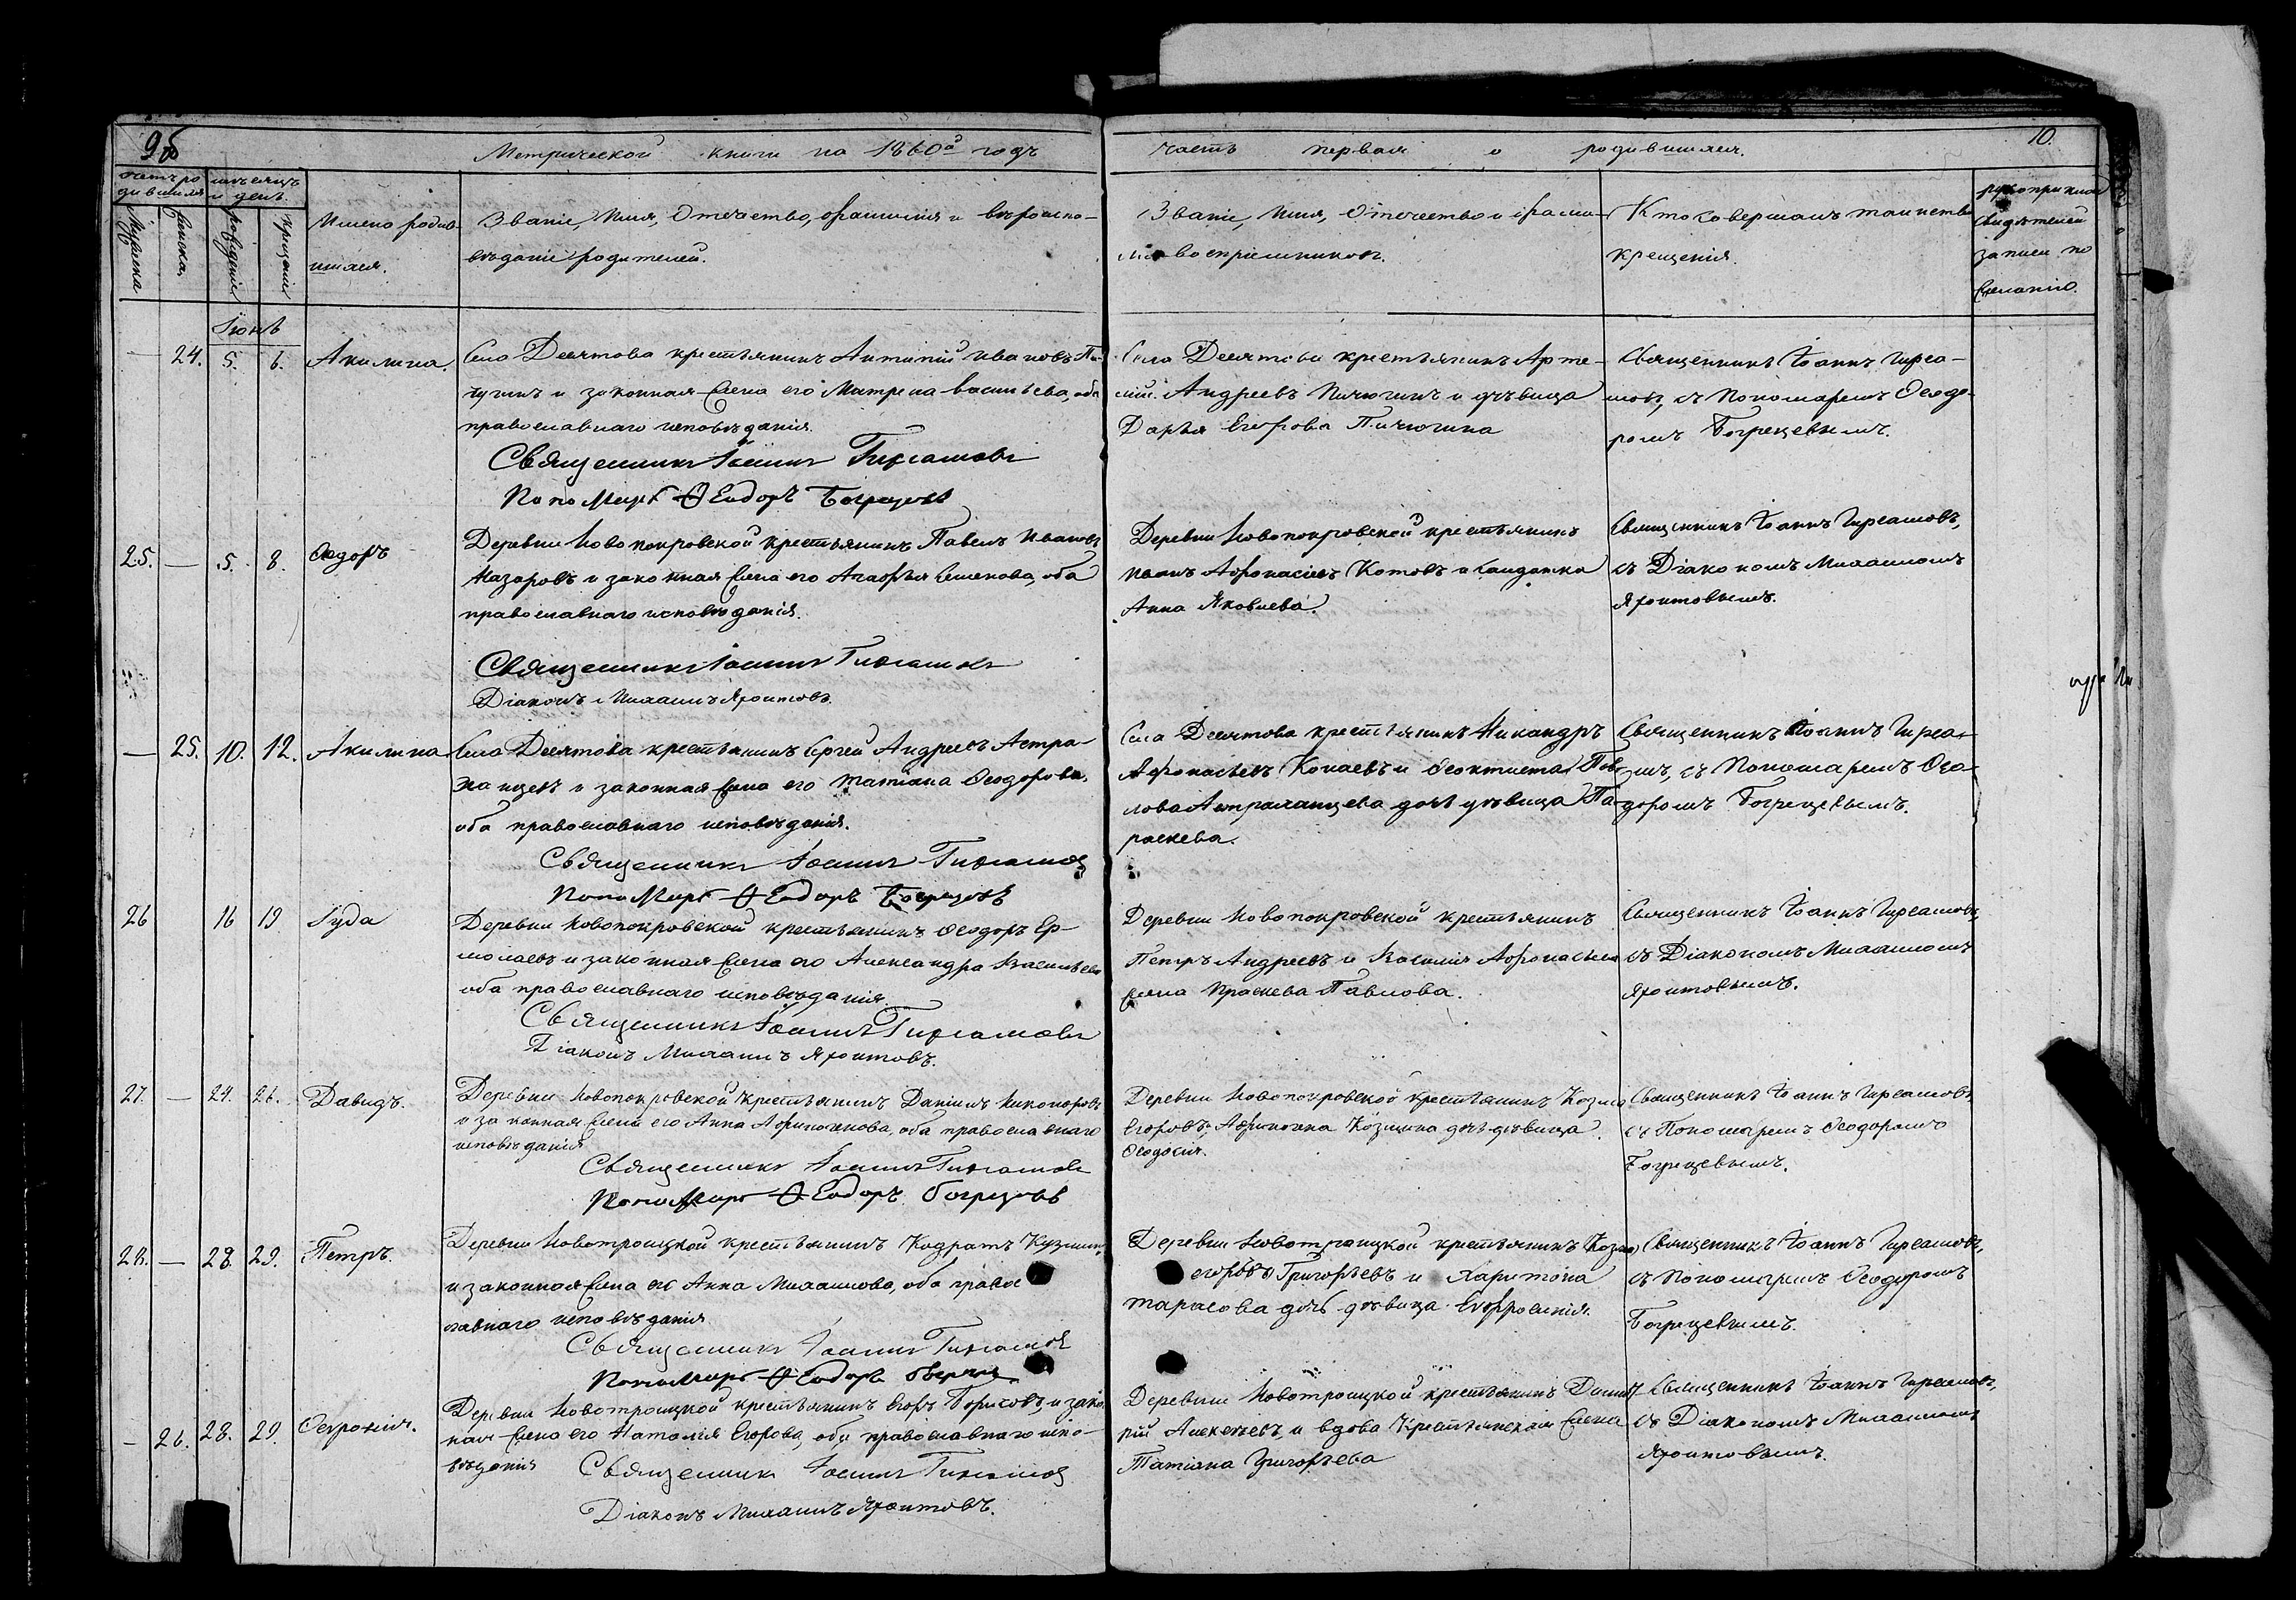 9б
Метрической книги на 1860й годъ
часть первая о родившихся.
10.
счетъ ро-
дившихся
мѣсяцъ
и день.
Мужеска
Женска
рожденіе
крещеніе
Имена родив-
шихся.
Званіе, Имя, Отечество, фамилія и вѣроиспо-
вѣданіе родителей.
Званіе, Имя, Отечество и фами-
лія воспріемниковъ.
Кто совершалъ таинство
крещенія.
рукоприклад
свидѣтелей
записи по
желанію.
Іюнь
— 24. 5. 6. Акилина.
Села Десятова крестьянинъ Антипій Ивановъ Пи-
чугинъ и законная жена его Матрена Васильева, оба
православнаго исповѣданія.
Священникъ Іоаннъ Гирсамовъ
Пономарь Ѳеодоръ Богрецовъ
Села Десятова крестьянинъ Арте-
мій Андреевъ Пичюгинъ и дѣвица
Дарья Егорова Пичюгина
Священникъ Іоаннъ Гирса-
мовъ, съ Пономаремъ Ѳеодо-
ромъ Богрецевымъ.
25. — 5. 8. Ѳедоръ
Деревни Новопокровской крестьянинъ Павелъ Ивановъ
Назаровъ и законная жена его Агафья Семенова, оба
православнаго исповѣданія.
Священникъ Іоаннъ Гирсамовъ
Діаконъ Михаилъ Яхонтовъ.
Деревни Новопокровской крестьянинъ
Иванъ Афонасіевъ Котовъ и солдатка
Анна Яковлева.
Священникъ Іоаннъ Гирсамовъ,
съ Діакономъ Михаиломъ
Яхонтовымъ.
— 25. 10. 12. Акилина
Села Десятова крестьянинъ Сергей Андреевъ Астра-
ханцевъ и законная жена его Татіана Ѳеодорова,
оба православнаго исповѣданія.
Священникъ Іоаннъ Гирсамовъ
Пономарь Ѳеодоръ Богрецовъ
Села Десятова крестьянинъ Никандръ
Афонасьевъ Копаевъ и Ѳеоктиста Пав-
лова Астраханцева дочь дѣвица Па-
раскева.
Священникъ Іоаннъ Гирса-
мъ, съ Пономаремъ Ѳео-
доромъ Богрецевымъ.
26 16 19 Іуда
Деревни Новопокровской крестьянинъ Ѳеодоръ Ер-
молаевъ и законная жена его Александра Васильева
оба православнаго исповѣданія.
Священникъ Іоаннъ Гирсамовъ
Діаконъ Михаилъ Яхонтовъ.
Деревни Новопокровской крестьянинъ
Петръ Андреевъ и Василія Афонасьева
жена Праскева Павлова.
Священникъ Іоаннъ Гирсамовъ,
съ Діакономъ Михаиломъ
Яхонтовымъ.
27. — 24. 26. Давидъ.
Деревни Новопокровской крестьянинъ Даніилъ Никоноровъ
и законная жена его Анна Афиногенова, оба православнаго
исповѣданія
Священникъ Іоаннъ Гирсамовъ
Пономарь Ѳеодоръ Богрецовъ
Деревни Новопокровской крестьянинъ Козма
Егоровъ, Козмина дочь дѣвица
Ѳеодосія.
Священникъ Іоаннъ Гирсамовъ
съ Пономаремъ Ѳеодоромъ
Богрецевымъ.
28. — 28. 29. Петръ.
Деревни Новотроицкой крестьянинъ Кодратъ Кузминъ
и законная жена его Анна Михаилова, оба право-
славнаго исповѣданія
Священникъ Іоаннъ Гирсамовъ
Пономарь Ѳеодоръ
Деревни Новотроицкой крестьянинъ Козма
Егоровъ Григорьевъ и Харитона
Тарасова дочь дѣвица Евфросинія.
Священникъ Іоаннъ Гирсамовъ,
съ Пономаремъ Ѳеодоромъ
Богрецевымъ.
— 26. 28. 29. Ѳевронія.
Деревни Новотроицкой крестьянинъ Егоръ Борисовъ, и зако-
ная жена его Наталія Егорова, оба православнаго испо-
вѣданія
Священникъ Іоаннъ Гирсамовъ
Діаконъ Михаилъ Яхонтовъ.
Деревни Новотроицкой крестьянинъ Дмит-
рій Алексѣевъ, и вдова Крестьянская жена
Татіана Григорьева
Священникъ Іоаннъ Гирсамовъ,
съ Діакономъ Михаиломъ
Яхонтовымъ.